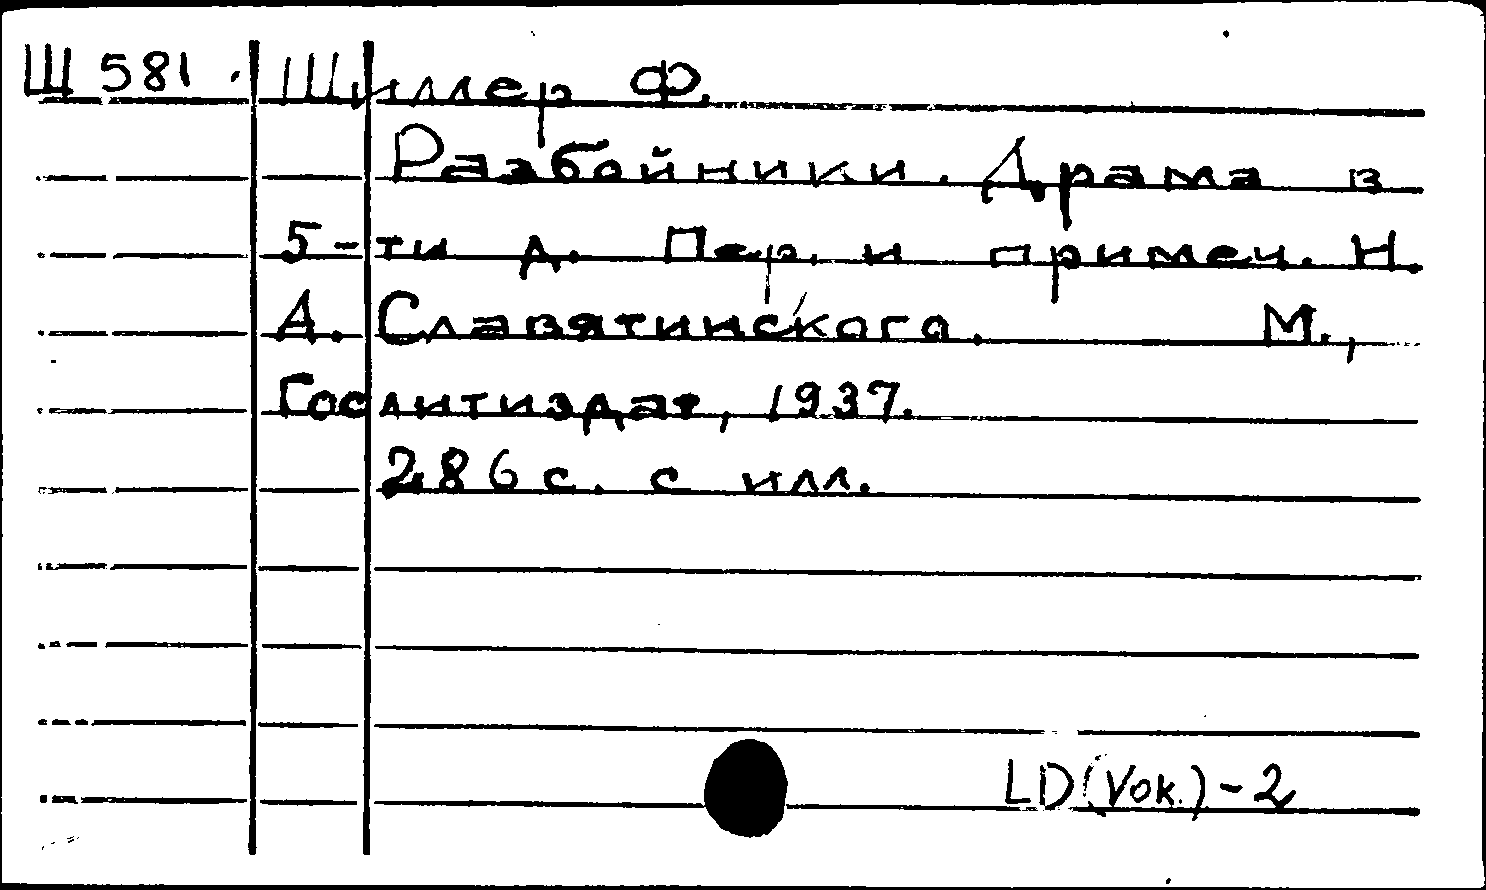 Ш 581. Шиллер Ф.
Разбойники. Драма в
5-ти д. Пер. и примеч. Н.
А. Славятинского. М.,
Гослитиздат, 1937.
286 с. с илл.
LD (Vok.) - 2